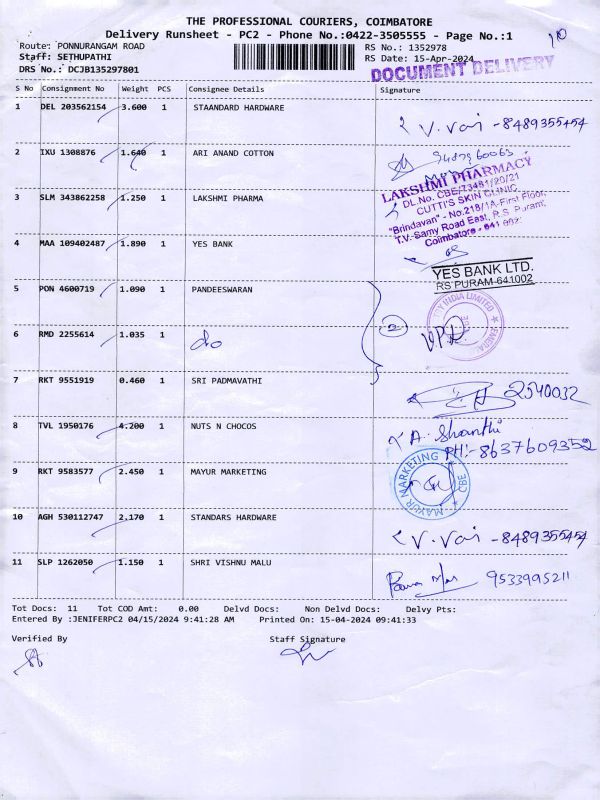 THE PROFESSIONAL COURIERS, COIMBATORE
Delivery Runsheet - PC2 - Phone No.:0422-3505555 - Page No.:1
Route: PONNURANGAM ROAD RS No.: 1352978
Staff: SETHUPATHI RS Date: 15-Apr-2024
DRS No.: DCJB135297801 DOCUMENT DELIVERY
S No Consignment No Weight PCS Consignee Details Signature
1 DEL 203562154 3.600 1 STAANDARD HARDWARE V. Vai - 8489355454
2 IXU 1308876 1.640 1 ARI ANAND COTTON
3 SLM 343862258 1.250 1 LAKSHMI PHARMA
LAKSHMI PHARMACY
DL.No. CBE/
CUTTI'S SKIN CLINIC
"Brindavan" - No:218/1A-First Floor,
T.V. Samy Road East, R.S. Puram,
Coimbatore - 641 002.
4 MAA 109402487 1.890 1 YES BANK
YES BANK LTD.
RS PURAM-641002
5 PON 4600719 1.090 1 PANDEESWARAN
INDIA LIMITED
6 RMD 2255614 1.035 1 do 2
7 RKT 9551919 0.460 1 SRI PADMAVATHI 2540032
8 TVL 1950176 4.200 1 NUTS N CHOCOS A. Shanthi
PH:- 8637609352
9 RKT 9583577 2.450 1 MAYUR MARKETING
MAYUR MARKETING CBE
10 AGH 530112747 2.170 1 STANDARS HARDWARE V. Vai - 8489355454
11 SLP 1262050 1.150 1 SHRI VISHNU MALU 9533995211
Tot Docs: 11 Tot COD Amt: 0.00 Delvd Docs: Non Delvd Docs: Delvy Pts:
Entered By :JENIFERPC2 04/15/2024 9:41:28 AM Printed On: 15-04-2024 09:41:33
Verified By Staff Signature